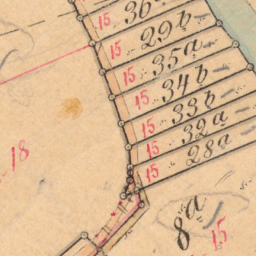 15 36
15 29b
15 35a
15 34b
15 33b
15 32a
15 28a
18
8a
15